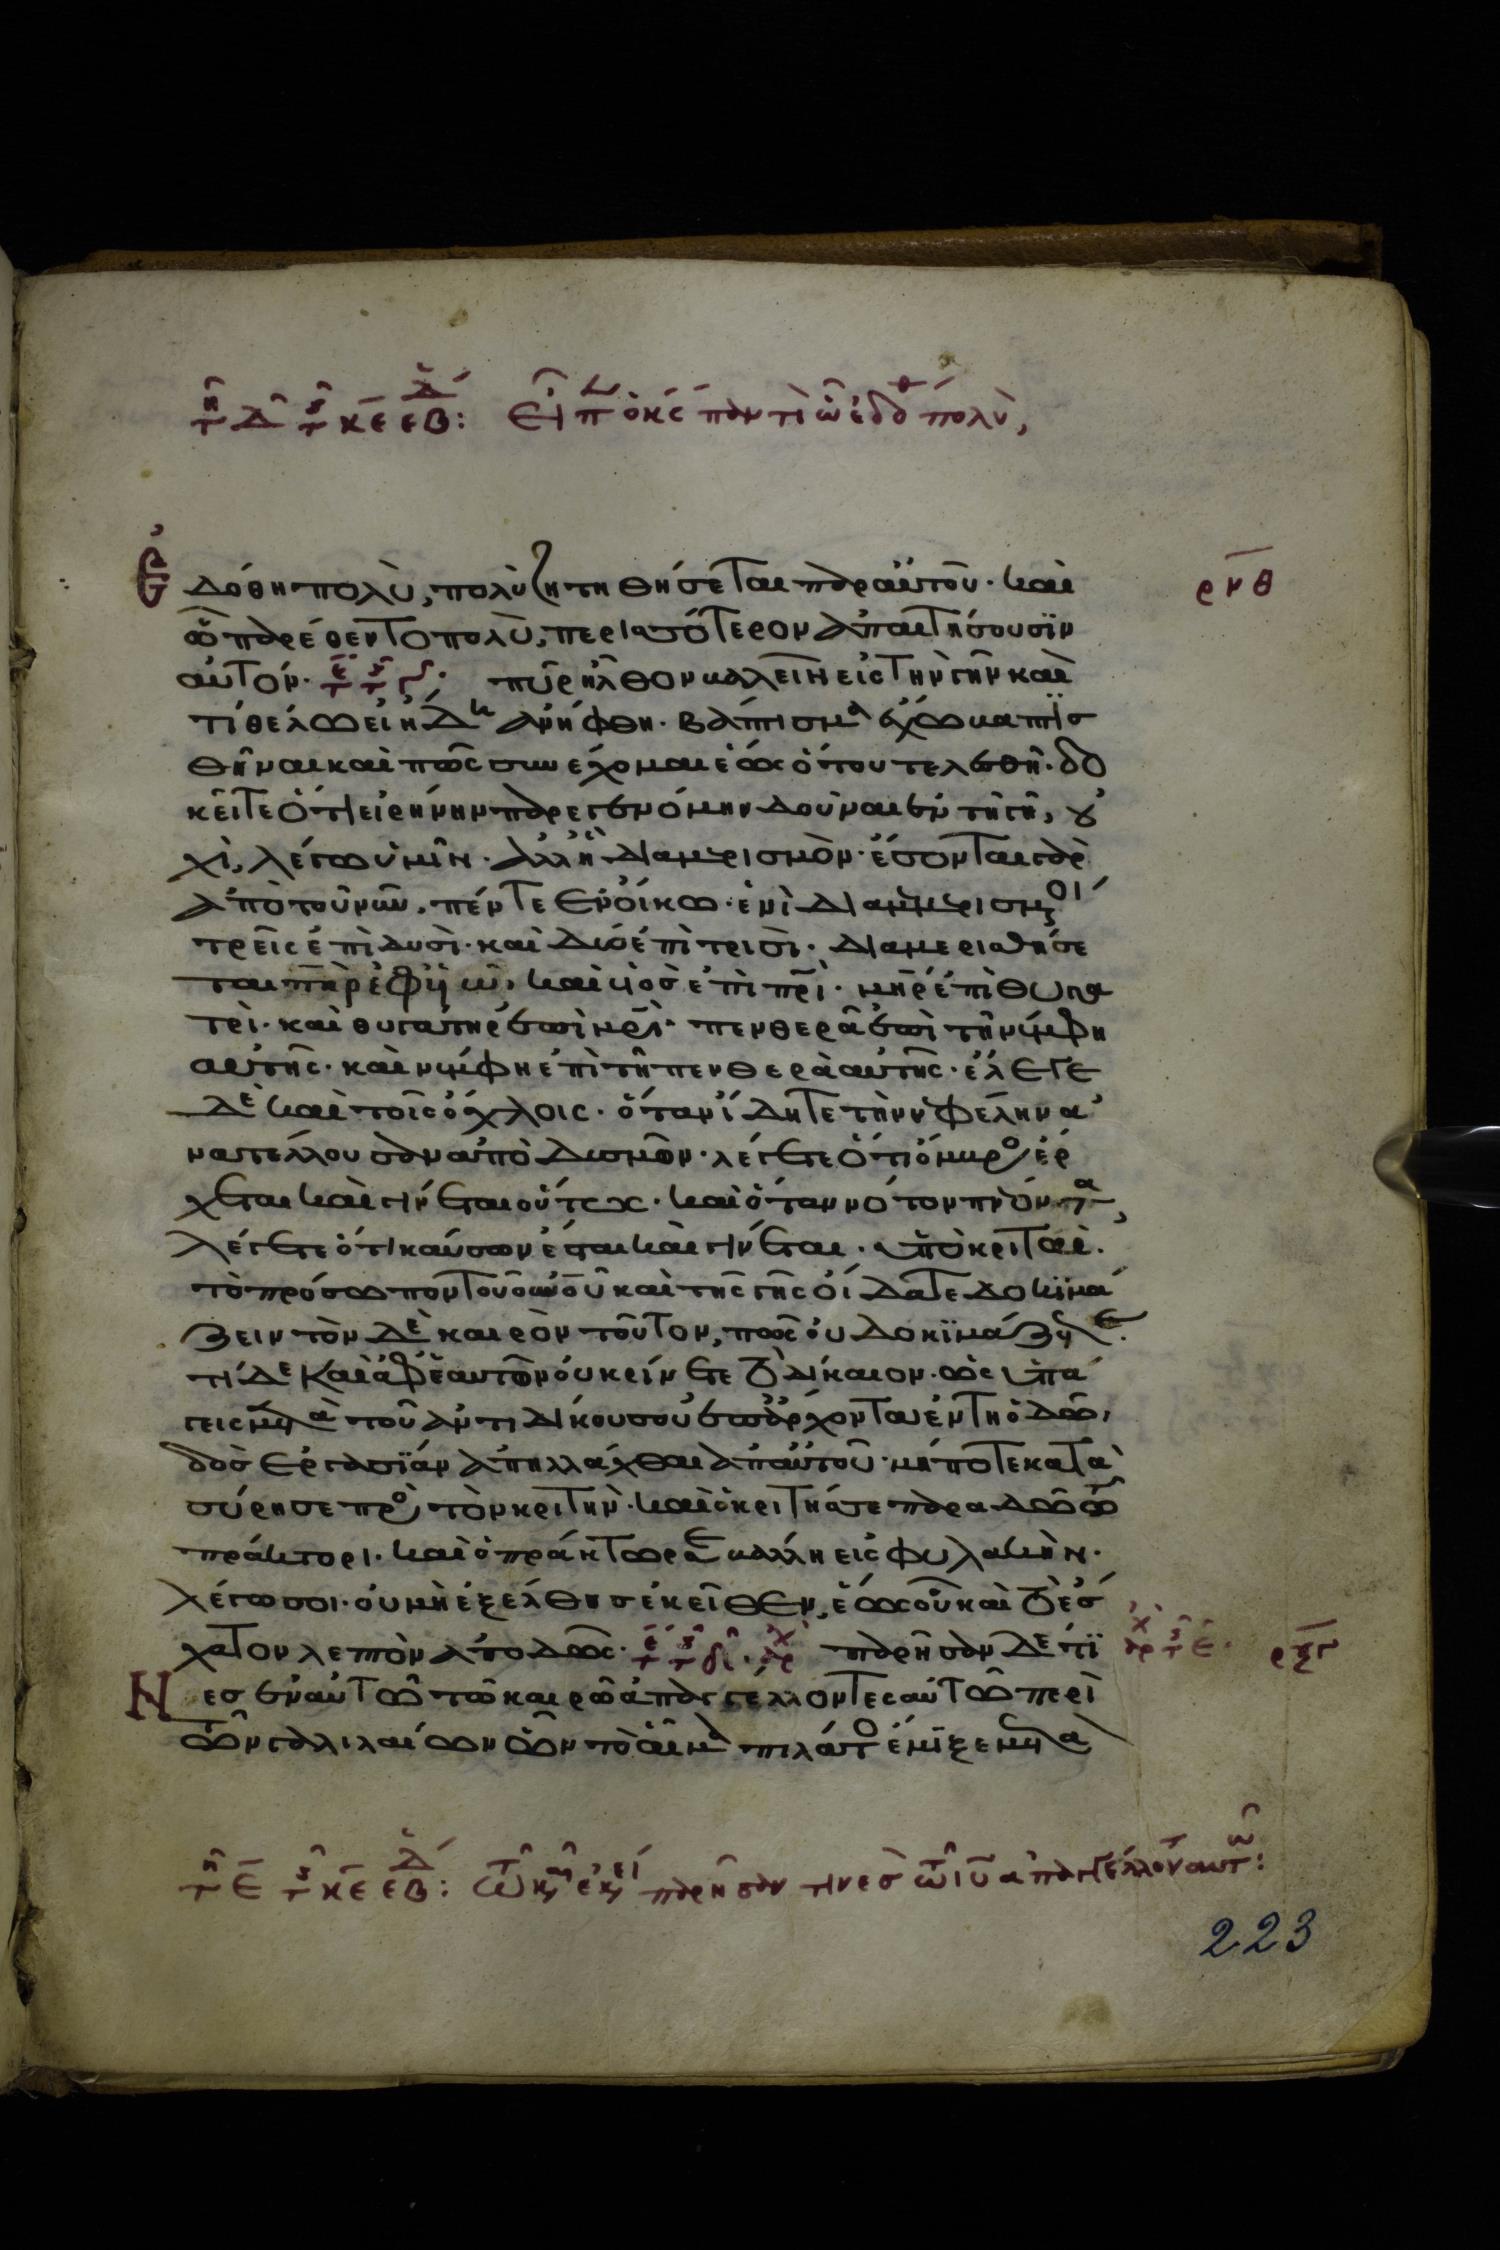 τῇ Δ τῆς κε εβδ: Εἶπ ὁ κς παντὶ ᾧ ἐδόθ πολὺ,
ἐδόθη πολὺ, πολὺ ζητηθήσεται παρ αὐτοῦ· καὶ
ρνθ
ᾧ παρέθεντο πολὺ, περισσότερον ἀπαιτήσουσϊν
αὐτόν· πῦρ ἦλθον βαλεῖν εἰς τὴν γῆν καὶ
τί θέλω εἰ ἤδη ἀνήφθη· βάπτισμα ἔχω βαπτϊσ
θῆναι καὶ πῶς συνέχομαι ἕως ὅτου τελεσθῇ· δο
κεῖτε ὅτι εἰρήνην παρεγενόμην δοῦναι ἐν τῆ γῆ, οὐ
χὶ, λέγω ὑμῖν· ἀλλ ἢ διαμερισμὸν· ἔσονται γὰρ
ἀπὸ τοῦ νῦν· πέντε ἐν οἴκω ἑνὶ διαμεμερισμένοι
τρεῖς ἐπὶ δυσὶ· καὶ δύο ἐπὶ τρισὶ· διαμερισθήσε
ται πηρ ἐφ υἱῶ· καὶ υἱὸσ ἐπὶ πρὶ· μηρ ἐπὶ θυγα
τρὶ· καὶ θυγατηρ ἐπὶ μρὶ· πενθερᾶ ἐπὶ τὴν νύμφη
αὐτῆς· καὶ νύμφη ἐπὶ τὴ πενθερὰ αὐτῆς· ἔλεγε
δὲ καὶ τοῖς ὄχλοις· ὅταν ἴδητε τὴν νεφέλην ἀ
νατέλλουσαν ἀπὸ δυσμῶν· λέγετε ὅτι ὄμβρος ἔρ
χεται καὶ γίνεται οὕτως· καὶ ὅταν νότον πνέοντα,
λέγετε ὅτι καύσων ἔσται καὶ γίνεται· ὑποκριταὶ·
τὸ πρόσωπον τοῦ οὐνοῦ καὶ τῆς γῆς οἴδατε δοκϊμά
ζειν τὸν δὲ καιρὸν τοῦτον, πῶς οὐ δοκϊμάζετε·
τί δὲ καὶ ἀφ ἑαυτῶν οὐ κρίνετε τὸ δίκαιον· ὡς ὑπά
γεις μετὰ τοῦ ἀντιδίκου σοῦ ἐπ ἄρχοντα ἐν τῆ ὁδῶ,
δὸσ ἐργασϊάν ἀπηλλάχθαι ἀπ αὐτοῦ· μήποτε κατὰ
σύρη σε πρὸς τὸν κριτὴν· καὶ ὁ κριτής σε παραδῶ τῶ
πράκτορι· καὶ ὁ πράκτωρ σε βάλλη εἰς φυλακὴν·
λέγω σοι· οὐ μὴ ἐξέλθησ ἐκεῖθεν, ἕως οὗ καὶ τὸ ἔσ
χατον λεπτὸν ἀποδῶς· παρῆσαν δέ τϊ
ρξ
νεσ ἐν αὐτῶ τῶ καιρῶ ἀπαγγέλλοντες αὐτῶ περὶ
τῶν γαλιλαίων ὧν τὸ αἷμα πιλάτος ἔμϊξε μετὰ
τῇ Ε τῆς κε εβδ: Τῶ κρῶ ἐκεί παρῆσαν τινεσ τῶ ιυ ἀπαγγέλλοντ αυτῶ:
223